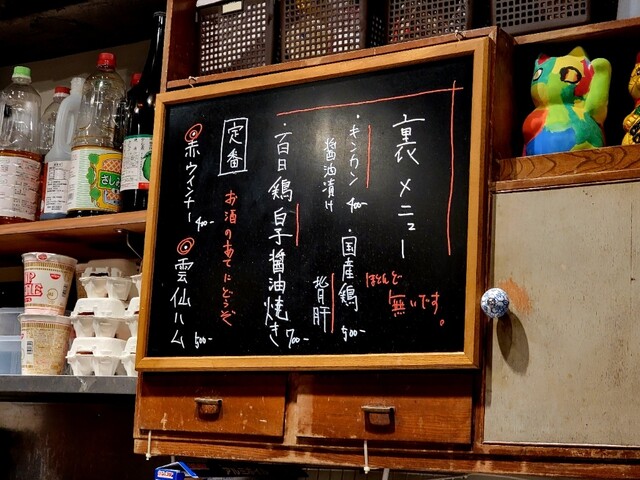 裏メニュー
ほとんど
無いです。
・キンカン
醤油漬け 400-
・国産鶏
背肝 500-
・百日鶏白子醤油焼き 700-
定番
お酒のあてにどうぞ
赤ウィンナー 400-
雲仙ハム 500-